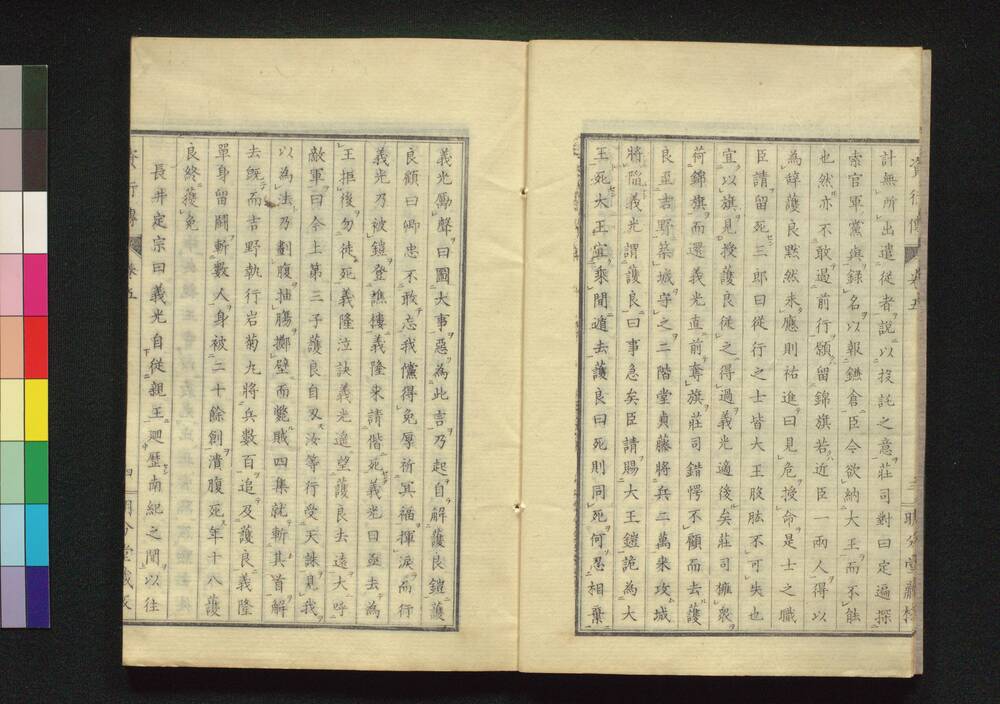 計無所出遣從者說以投託之意莊司對曰定遍探
索官軍黨與錄名以報鎌倉臣今欲納大王而不能
也然亦不敢過前行願留錦旗若近臣一兩人得以
為辭護良默然未應則祐進曰見危授命是士之職
臣請留死三郎曰從行之士皆大王股肱不可失也
宜以旗見授護良從之得過義光適後矣莊司擁衆
荷錦旗而還義光直前奪旗莊司錯愕不顧而去護
良至吉野築城守之二階堂貞藤將兵二萬來攻城
將陷義光謂護良曰事急矣臣請賜大王鎧詭為大
王死大王宜乘間遁去護良曰死則同死何忍相棄
義光勵聲曰圖大事惡為此言乃起自解護良鎧護
良顧曰卿忠不敢忘我儻得免厚祈冥福揮淚而行
義光乃被鎧登譙樓義隆來請偕死義光曰亟去為
王拒後勿徒死義隆泣訣義光遙望護良去遠大呼
敵軍曰今上第三子護良自刃汝等行受天誅見我
以為法乃劃腹抽腸擲壁而斃賊四集就斬其首解
去既而吉野執行岩菊丸將兵數百追及護良義隆
單身留鬪斬數人身被二十餘創潰腹死年十八護
良終獲免
長井定宗曰義光自從親王廻歷南紀之間以往
卷五
四